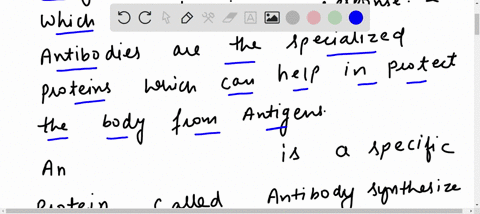 which
Antibodies are the specialized
proteins which can help in protect
the body from Antigens.
An is a specific
Protein called Antibody synthesize